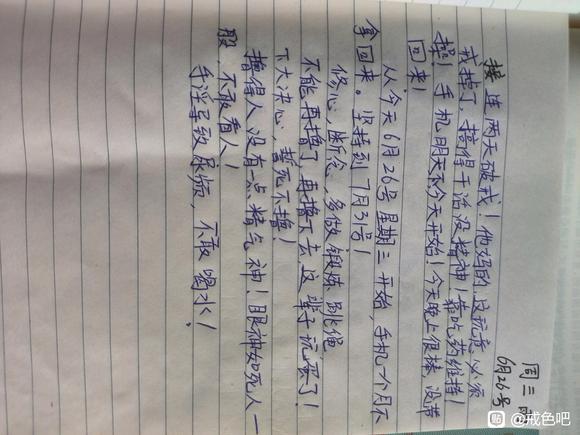 周三
6月26号
接连两天破戒!他妈的这玩意必须
戒掉了 撸得干活没精神!靠吃药维持!
操!手机明天不今天开始!今天晚上很棒 没带
回来!
从今天6月26号星期三开始,手机1个月不
拿回来。坚持到7月31号!
修心,断念,多做锻炼 跳绳
不能再撸了 再撸下去这辈子玩完了!
下大决心,誓死不撸!
撸得人没有一点精气神!眼神如死人一
般,不敢看人!
手淫导致尿频,不敢喝水!
贴 @戒色吧